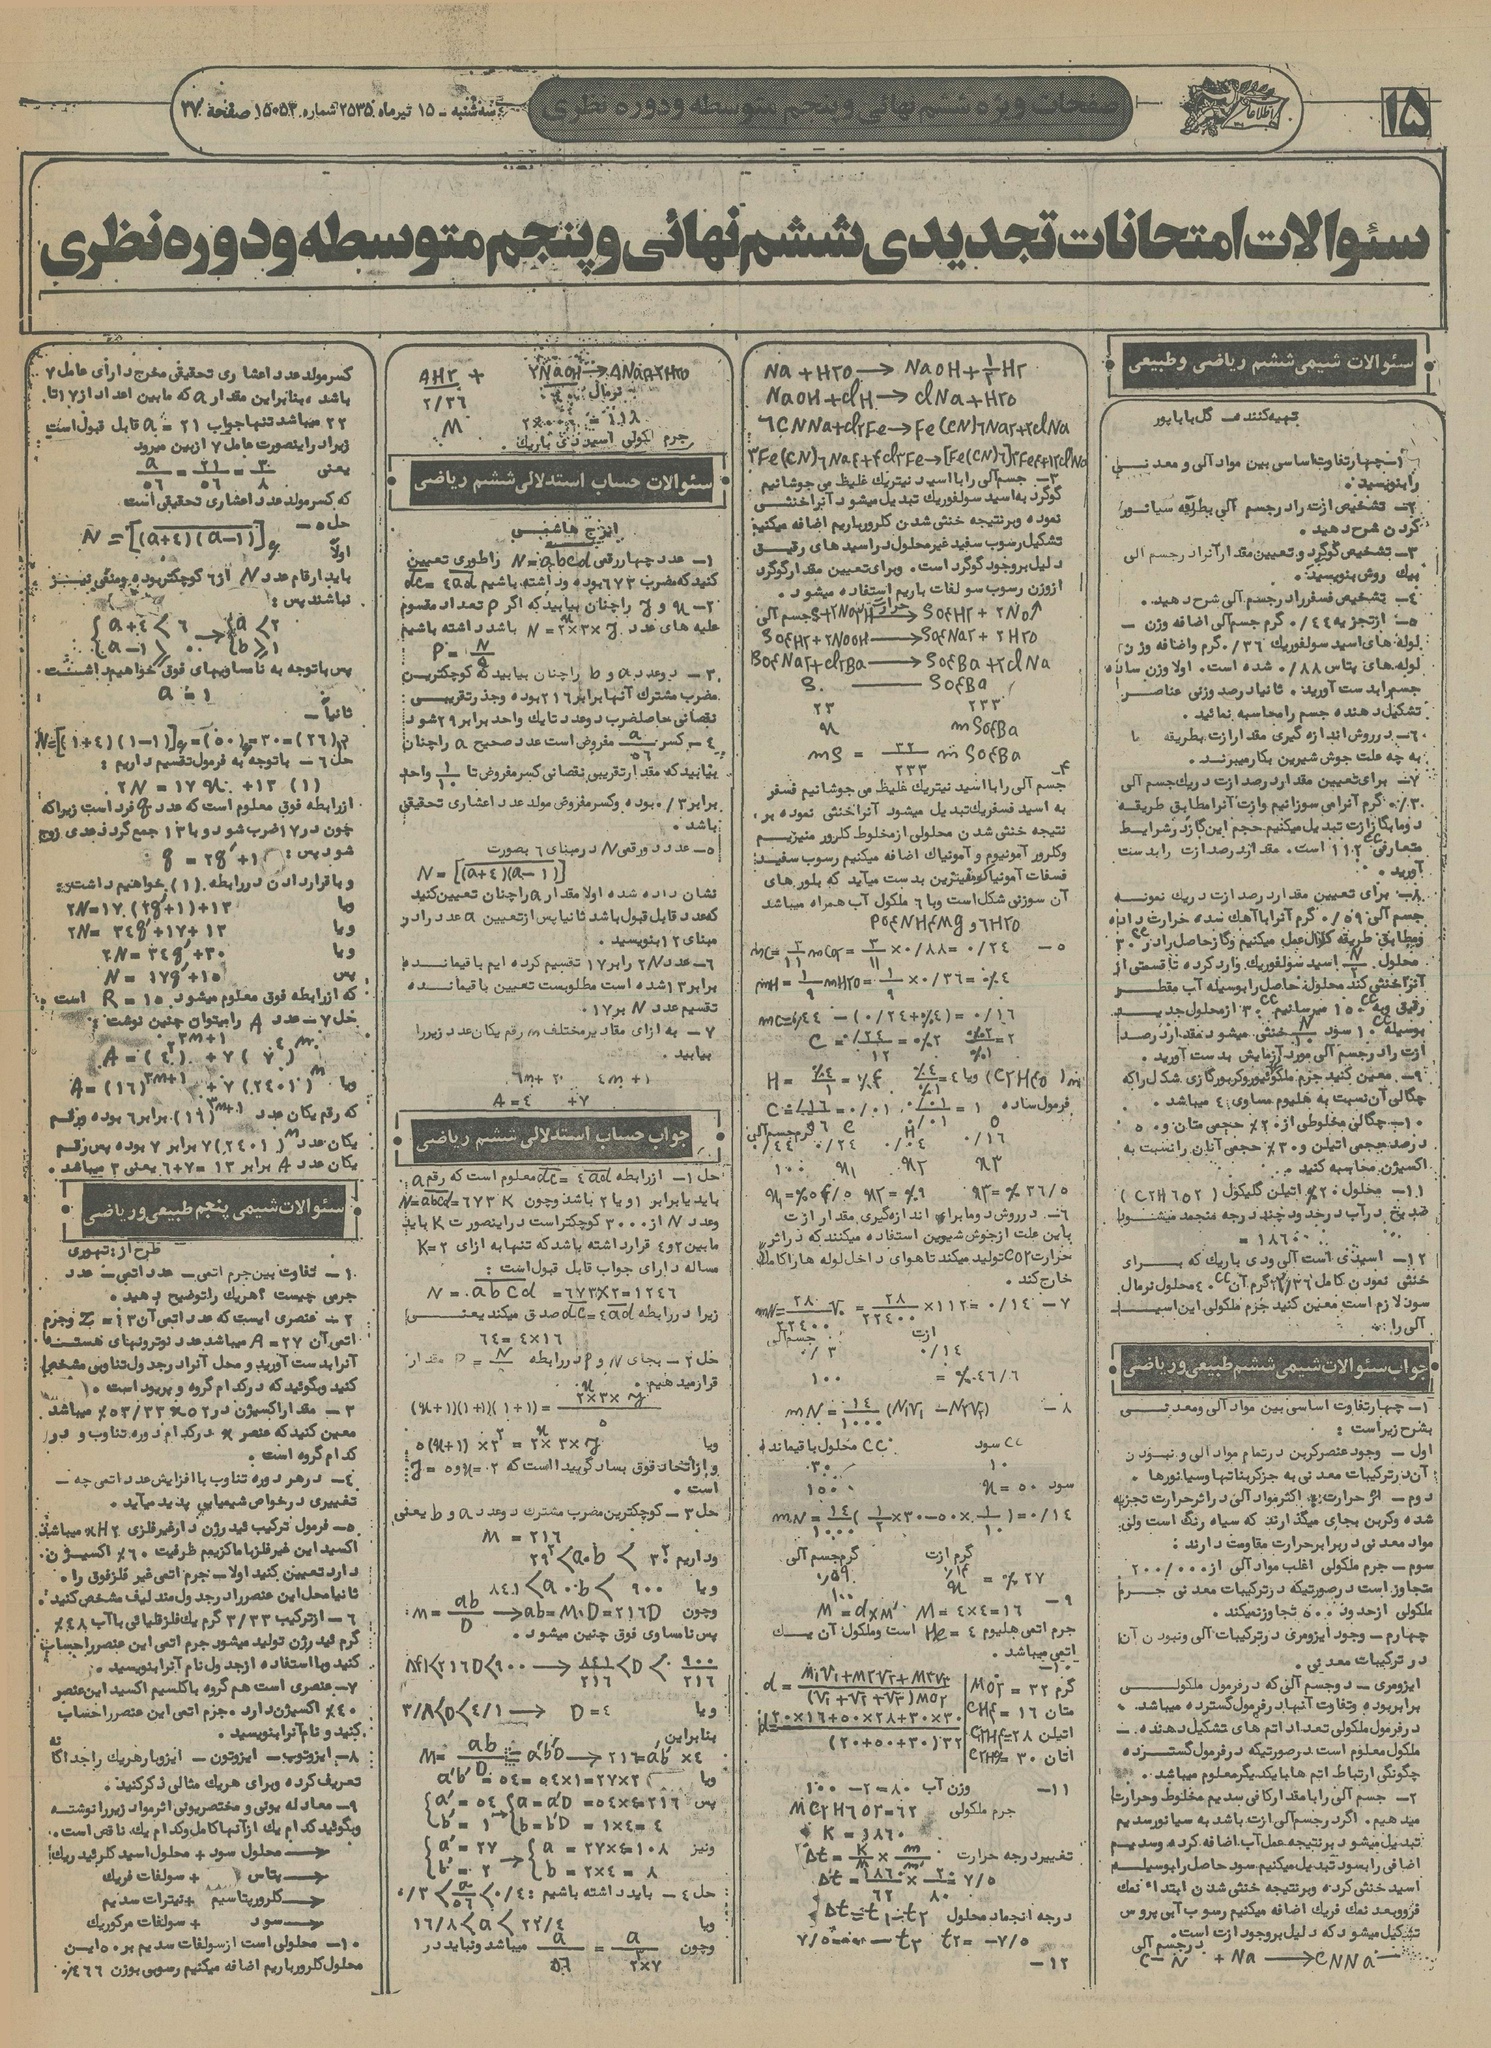 ۱۵
صفحات ویژه ششم نهائی و پنجم متوسطه و دوره نظری
سه‌شنبه - ۱۵ تیرماه ۲۵۳۵ شماره ۱۵۰۵۳ صفحه ۲۷
سئوالات امتحانات تجدیدی ششم نهائی و پنجم متوسطه و دوره نظری
سئوالات شیمی ششم ریاضی و طبیعی
تهیه کننده - گل باباپور
۱- چهار تفاوت اساسی بین مواد آلی و معدنی
را بنویسید.
۲- تشخیص ازت را در جسم آلی بطریقه سیانور
کردن شرح دهید.
۳- تشخیص گوگرد و تعیین مقدار آنرا در جسم آلی
بیک روش بنویسید.
۴- تشخیص فسفر را در جسم آلی شرح دهید.
۵- از تجزیه ۰/۴۴ گرم جسم آلی اضافه وزن
لوله های اسید سولفوریک ۰/۳۶ گرم و اضافه وزن
لوله های پتاس ۰/۸۸ شده است. اولا وزن ساده
جسم را بدست آورید. ثانیا درصد وزنی عناصر
تشکیل دهنده جسم را محاسبه نمائید.
۶- در روش اندازه گیری مقدار ازت بطریقه دوما
به چه علت جوش شیرین بکار میبرند.
۷- برای تعیین مقدار درصد ازت در یک جسم آلی
۰/۳۰ گرم آنرا می سوزانیم و ازت آنرا مطابق طریقه
دوما بگاز ازت تبدیل میکنیم حجم این گاز در شرایط
متعارفی ۱۱۲cc است. مقدار درصد ازت را بدست
آورید.
۸- برای تعیین مقدار درصد ازت در یک نمونه
جسم آلی ۰/۵۹ گرم آنرا با آهک سده حرارت داده
و مطابق طریقه کلدال عمل میکنیم و گاز حاصل را در ۳۰cc
محلول N/۲ اسید سولفوریک وارد کرده تا قسمتی از
آنرا خنثی کند محلول حاصل را بوسیله آب مقطر
رقیق و به ۱۵۰cc میرسانیم ۳۰cc از محلول جدید
بوسیله ۱۰cc سود N/۱۰ خنثی میشود مقدار درصد
ازت را در جسم آلی مورد آزمایش بدست آورید.
۹- معین کنید جرم ملکولی هیدروکربور گازی شکل را که
چگالی آن نسبت به هلیوم مساوی ۴ میباشد.
۱۰- چگالی مخلوطی از ۲۰٪ حجمی متان و ۵۰
درصد حجمی اتیلن و ۳۰٪ حجمی آنان را نسبت به
اکسیژن محاسبه کنید.
۱۱- محلول ۲۰٪ اتیلن گلیکول (C۲H۶O۲)
ضدیخ در آب در حدود چند درجه منجمد میشود
= ۱۸۶۰
۱۲- اسیدی است آلی ودی باریک که برای
خنثی نمودن کامل ۲/۳۶ گرم آن ۴۰cc محلول نرمال
سود لازم است معین کنید جرم ملکولی این اسید
آلی را.
جواب سئوالات شیمی ششم طبیعی و ریاضی
۱- چهار تفاوت اساسی بین مواد آلی و معدنی
بشرح زیر است:
اول - وجود عنصر کربن در تمام مواد آلی و نبودن
آن در ترکیبات معدنی به جز کربناتها و سیانورها.
دوم - اثر حرارت: اکثر مواد آلی در اثر حرارت تجزیه
شده و کربن بجای میگذارند که سیاه رنگ است ولی
مواد معدنی در برابر حرارت مقاومت دارند:
سوم - جرم ملکولی اغلب مواد آلی از ۲۰۰/۰۰۰
متجاوز است در صورتیکه در ترکیبات معدنی جرم
ملکولی از حدود ۵۰۰ تجاوز نمیکند.
چهارم - وجود ایزومری در ترکیبات آلی و نبودن آن
در ترکیبات معدنی.
ایزومری - دو جسم آلی که در فرمول ملکولی
برابر بوده و تفاوت آنها در فرمول گسترده میباشد.
در فرمول ملکولی تعداد اتم های تشکیل دهنده
ملکول معلوم است در صورتیکه در فرمول گسترده
چگونگی ارتباط اتم ها با یکدیگر معلوم میباشد.
۲- جسم آلی را با مقدار کافی سدیم مخلوط و حرارت
میدهیم. اگر در جسم آلی ازت باشد به سیانور سدیم
تبدیل میشود بر نتیجه عمل آب اضافه کرده و سدیم
اضافی را بسود تبدیل میکنیم سود حاصل را بوسیله
اسید خنثی کرده و بر نتیجه خنثی شدن ابتدا نمک
فرو و بعد نمک فریک اضافه میکنیم رسوب آبی پروس
تشکیل میشود که دلیل بر وجود ازت است.
در جسم آلی
C - N + Na → CNNa
Na + H۲O → NaOH + ½H۲
NaOH + ClH → ClNa + H۲O
۶CNNa + Cl۲Fe → Fe(CN)۶Na۴ + ۲ClNa
۳Fe(CN)۶Na۴ + ۴Cl۳Fe → [Fe(CN)۶]۳Fe۴ + ۱۲ClNa
۳- جسم آلی را با اسید نیتریک غلیظ می جوشانیم
گوگرد به اسید سولفوریک تبدیل میشود آنرا خنثی
نموده و بر نتیجه خنثی شدن کلرور باریم اضافه میکنیم
تشکیل رسوب سفید غیر محلول در اسید های رقیق
دلیل بر وجود گوگرد است. و برای تعیین مقدار گوگرد
از وزن رسوب سولفات باریم استفاده میشود.
جسم آلی S + ۲NO۳H حرارت → SO۴H۲ + ۲NO↑
SO۴H۲ + ۲NaOH → SO۴Na۲ + ۲H۲O
SO۴Na۲ + Cl۲Ba → SO۴Ba + ۲ClNa
S —— SO۴Ba
۲۳ ۲۳۳
x mSO۴Ba
mS = ۳۲/۲۳۳ m SO۴Ba
۴-
جسم آلی را با اسید نیتریک غلیظ می جوشانیم فسفر
به اسید فسفریک تبدیل میشود آنرا خنثی نموده بر
نتیجه خنثی شدن محلولی از مخلوط کلرور منیزیم
و کلرور آمونیوم و آمونیاک اضافه میکنیم رسوب سفید
فسفات آمونیاکو منیزین بدست میآید که بلور های
آن سوزنی شکل است و با ۶ ملکول آب همراه میباشد
PO۴NH۴Mg و ۶H۲O
۵- mC = ۳/۱۱ mCO۲ = ۳/۱۱ × ۰/۸۸ = ۰/۲۴
mH = ۱/۹ mH۲O = ۱/۹ × ۰/۳۶ = ۰/۰۴
mO = ۰/۴۴ - (۰/۲۴ + ۰/۰۴) = ۰/۱۶
C = ۰/۲۴/۱۲ = ۰/۰۲ ۰/۰۲/۰/۰۱ = ۲
H = ۰/۰۴/۱ = ۰/۰۴ ۰/۰۴/۰/۰۱ = ۴ و یا (C۲H۴O)n
O = ۰/۱۶/۱۶ = ۰/۰۱ ۰/۰۱/۰/۰۱ = ۱ فرمول ساده
گرم جسم آلی C H O
۰/۴۴ ۰/۲۴ ۰/۰۴ ۰/۱۶
۱۰۰ x۱ x۲ x۳
x۱ = ٪۵۴/۵ x۲ = ٪۹ x۳ = ٪۳۶/۵
۶- در روش دوما برای اندازه گیری مقدار ازت
باین علت از جوش شیرین استفاده میکنند که در اثر
حرارت CO۲ تولید میکند تا هوای داخل لوله ها را کاملا
خارج کند.
۷- mN = ۲۸/۲۲۴۰۰ V = ۲۸/۲۲۴۰۰ × ۱۱۲ = ۰/۱۴
جسم آلی ازت
۰/۳ ۰/۱۴
۱۰۰ = ٪۴۶/۶
۸- mN = ۱۴/۱۰۰۰ (N۱V۱ - N۲V۲)
سود CC محلول باقیمانده CC
۱۰ ۳۰
x = ۵۰ سود ۱۵۰
mN = ۱۴/۱۰۰۰ (۱/۲ × ۳۰ - ۵۰ × ۱/۱۰) = ۰/۱۴
گرم جسم آلی گرم ازت
۰/۵۹ ۰/۱۴
۱۰۰ x = ٪۲۷
۹- M = d × M′ M = ۴ × ۴ = ۱۶
جرم اتمی هلیوم ۴ = He است و ملکول آن یک
اتمی میباشد.
۱۰-
d = M۱V۱ + M۲V۲ + M۳V۳ / (V۱ + V۲ + V۳) MO۲
گرم ۳۲ = MO۲
متان ۱۶ = CH۴
اتیلن ۲۸ = C۲H۴
اتان ۳۰ = C۲H۶
d = ۲۰×۱۶ + ۵۰×۲۸ + ۳۰×۳۰ / (۲۰+۵۰+۳۰) ۳۲
۱۱- وزن آب ۸۰ = ۲۰ - ۱۰۰
جرم ملکولی MC۲H۶O۲ = ۶۲
K = ۱۸۶۰
تغییر درجه حرارت Δt = K/M × m/m′
Δt = ۱۸۶۰/۶۲ × ۲۰/۸۰ = ۷/۵
درجه انجماد محلول Δt = t۱ - t۲
۷/۵ = ۰ - t۲ t۲ = -۷/۵
۱۲-
AH۲ + ۲NaOH → ANa۲ + ۲H۲O
۲/۳۶ نرمال ۴۰
M = ۱۱۸
جرم ملکولی اسید دی باریک.
سئوالات حساب استدلالی ششم ریاضی
ایرج هاشمی
۱- عدد چهار رقمی N = abcd را طوری تعیین
کنید که مضرب ۶۷۳ بوده و داشته باشیم dc = ۴ad
۲- x و y را چنان بیابید که اگر P تعداد مقسوم
علیه های عدد N = ۲^x × ۳ × y باشد داشته باشیم
P = N/۵
۳- دو عدد a و b را چنان بیابید که کوچکترین
مضرب مشترک آنها برابر ۲۱۶ بوده و جذر تقریبی
نقصانی حاصلضرب دو عدد تا یک واحد برابر ۲۹ شود
۴- کسر a/۵۶ مفروض است عدد صحیح a را چنان
بیابید که مقدار تقریبی نقصانی کسر مفروض تا ۱/۱۰ واحد
برابر ۰/۳ بوده و کسر مفروض مولد عدد اعشاری تحقیقی
باشد.
۵- عدد دو رقمی N در مبنای ۶ بصورت
N = [(a+۴)(a-۱)]
نشان داده شده اولا مقدار a را چنان تعیین کنید
که عدد قابل قبول باشد ثانیا پس از تعیین a عدد را در
مبنای ۱۲ بنویسید.
۶- عدد ۲N را بر ۱۷ تقسیم کرده ایم باقیمانده
برابر ۱۳ شده است مطلوبست تعیین باقیمانده
تقسیم عدد N بر ۱۷.
۷- به ازای مقادیر مختلف m رقم یکان عدد زیر را
بیابید.
A = ۴^(۶m+۲) + ۷^(۴m+۱)
جواب حساب استدلالی ششم ریاضی
حل ۱- از رابطه dc = ۴ad معلوم است که رقم a
باید یا برابر ۱ و یا ۲ باشد و چون N = abcd = ۶۷۳ K
و عدد N از ۳۰۰۰ کوچکتر است در اینصورت K باید
مابین ۲ و ۴ قرار داشته باشد که تنها به ازای K = ۲
مساله دارای جواب قابل قبول است:
N = abcd = ۶۷۳×۲ = ۱۳۴۶
زیرا در رابطه dc = ۴ad صدق میکند یعنی
۶۴ = ۴×۱۶
حل ۲- بجای N و P در رابطه P = N/۵ مقدار
قرار میدهیم.
(x+۱)(۱+۱)(۱+۱) = ۲^x × ۳ × y / ۵
و یا ۵(x+۱) × ۲^۲ = ۲^x × ۳ × y
و از اتحاد فوق بسادگی پیدا است که x = ۲ و y = ۵
است.
حل ۳- کوچکترین مضرب مشترک دو عدد a و b یعنی
M = ۲۱۶
و داریم ۲۹^۲ < a.b < ۳۰^۲
و یا ۸۴۱ < a.b < ۹۰۰
و چون m = ab/D → ab = M.D = ۲۱۶D
پس نامساوی فوق چنین میشود.
۸۴۱ < ۲۱۶D < ۹۰۰ → ۸۴۱/۲۱۶ < D < ۹۰۰/۲۱۶
و یا ۳/۸ < D < ۴/۱ → D = ۴
بنابراین
M = ab/D = a′b′D → ۲۱۶ = a′b′ × ۴
و یا a′b′ = ۵۴ = ۵۴×۱ = ۲۷×۲
پس { a′ = ۵۴ b′ = ۱ → { a = a′D = ۵۴×۴ = ۲۱۶ b = b′D = ۱×۴ = ۴
و نیز { a′ = ۲۷ b′ = ۲ → { a = ۲۷×۴ = ۱۰۸ b = ۲×۴ = ۸
حل ۴- باید داشته باشیم: ۰/۳ < a/۵۶ < ۰/۴
و یا ۱۶/۸ < a < ۲۲/۴
و چون a/۵۶ = a/۲^۳×۷ میباشد و نباید در
کسر مولد عدد اعشاری تحقیقی مخرج دارای عامل ۷
باشد. بنابراین مقدار a که مابین اعداد از ۱۷ تا
۲۲ میباشد تنها جواب a = ۲۱ قابل قبول است
زیرا در اینصورت عامل ۷ از بین میرود
یعنی a/۵۶ = ۲۱/۵۶ = ۳/۸
که کسر مولد عدد اعشاری تحقیقی است
حل ۵-
N = [(a+۴)(a-۱)]۶
اولا
باید ارقام عدد N از ۶ کوچکتر بوده و منفی نیز
نباشند پس:
{ a+۴ < ۶ a-۱ ≥ ۰ → { a < ۲ b ≥ ۱
پس با توجه به نامساویهای فوق خواهیم داشت.
a = ۱
ثانیا -
N = [(۱+۴)(۱-۱)]۶ = (۵۰)۶ = ۳۰ = (۲۶)۱۲
حل ۶- با توجه به فرمول تقسیم داریم:
(۱) ۲N = ۱۷q + ۱۳
از رابطه فوق معلوم است که عدد q فرد است زیرا که
چون در ۱۷ ضرب شود و با ۱۳ جمع گردد عددی زوج
شود پس: q = ۲q′ + ۱
و با قرار دادن در رابطه (۱) خواهیم داشت:
۲N = ۱۷(۲q′+۱) + ۱۳ و یا
۲N = ۳۴q′ + ۱۷ + ۱۳ و یا
۲N = ۳۴q′ + ۳۰ و یا
N = ۱۷q′ + ۱۵ پس
که از رابطه فوق معلوم میشود R = ۱۵ است:
حل ۷- عدد A را میتوان چنین نوشت:
A = (۴^۲)^(۳m+۱) + ۷(۷^۴)^m
و یا A = (۱۶)^(۳m+۱) + ۷(۲۴۰۱)^m
که رقم یکان عدد (۱۶)^(۳m+۱) برابر ۶ بوده و رقم
یکان عدد ۷(۲۴۰۱)^m برابر ۷ بوده پس رقم
یکان عدد A برابر ۱۳ = ۷+۶ یعنی ۳ میباشد.
سئوالات شیمی پنجم طبیعی و ریاضی
طرح از: تهوری
۱- تفاوت بین جرم اتمی - عدد اتمی - عدد
جرمی چیست؟ هریک را توضیح دهید.
۲- عنصری ایست که عدد اتمی آن Z = ۱۳ و جرم
اتمی آن A = ۲۷ میباشد عدد نوترونهای هسته
آنرا بدست آورید و محل آنرا در جدول تناوبی مشخص
کنید و بگوئید که در کدام گروه و پریود است.
۳- مقدار اکسیژن در xO۲ ٪۵۳/۳۳ میباشد
معین کنید که عنصر x در کدام دوره تناوب و در
کدام گروه است.
۴- در هر دوره تناوب با افزایش عدد اتمی چه
تغییری در خواص شیمیایی پدید میآید.
۵- فرمول ترکیب ئیدرژن دار غیرفلزی xH۲ میباشد
اکسید این غیرفلز با ماکزیمم ظرفیت ۶۰٪ اکسیژن
دارد تعیین کنید اولا - جرم اتمی غیر فلز فوق را.
ثانیا محل این عنصر را در جدول مندلیف مشخص کنید.
۶- از ترکیب ۳/۳۳ گرم یک فلز قلیائی با آب ۰/۴۸
گرم ئیدرژن تولید میشود جرم اتمی این عنصر را حساب
کنید و با استفاده از جدول نام آنرا بنویسید.
۷- عنصری است هم گروه با کلسیم اکسید این عنصر
۴۰٪ اکسیژن دارد. جرم اتمی این عنصر را حساب
کنید و نام آنرا بنویسید.
۸- ایزوتوپ - ایزوتون - ایزوبار هریک را جداگانه
تعریف کرده و برای هریک مثالی ذکر کنید.
۹- معادله یونی و مختصر یونی اثر مواد زیر را نوشته
و بگوئید کدام یک از آنها کامل و کدام یک ناقص است.
محلول سود + محلول اسید کلرئیدریک →
پتاس + سولفات فریک →
کلرور پتاسیم + نیترات سدیم →
سود + سولفات مرکوریک →
۱۰- محلولی است از سولفات سدیم بر ۵۰ این
محلول کلرور باریم اضافه میکنیم رسوبی بوزن ۰/۴۶۶